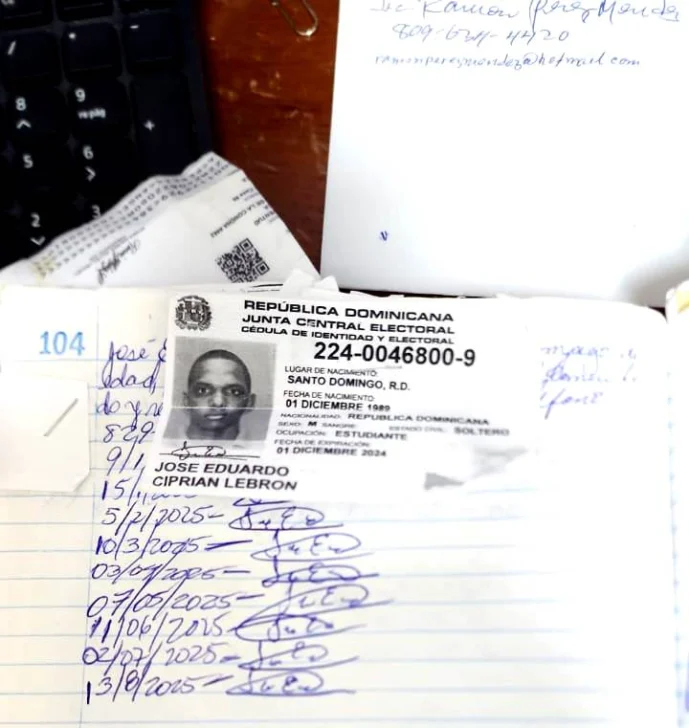 Lic Ramon Perez Mendez
ramonperezmendez@hotmail.com
8
9
re pág
+
5
6
2
3
104
José E
edad,
829
9/1
15/1
REPÚBLICA DOMINICANA
JUNTA CENTRAL ELECTORAL
CÉDULA DE IDENTIDAD Y ELECTORAL
224-0046800-9
LUGAR DE NACIMIENTO:
SANTO DOMINGO, R.D.
FECHA DE NACIMIENTO:
01 DICIEMBRE 1989
NACIONALIDAD: REPUBLICA DOMINICANA
SEXO: M SANGRE: ESTADO CIVIL: SOLTERO
OCUPACIÓN: ESTUDIANTE
FECHA DE EXPIRACIÓN:
01 DICIEMBRE 2024
JOSE EDUARDO
CIPRIAN LEBRON
5/2/2025-
10/3/2025-
07/05/2025-
11/06/2025
02/07/2025-
13/8/2025-